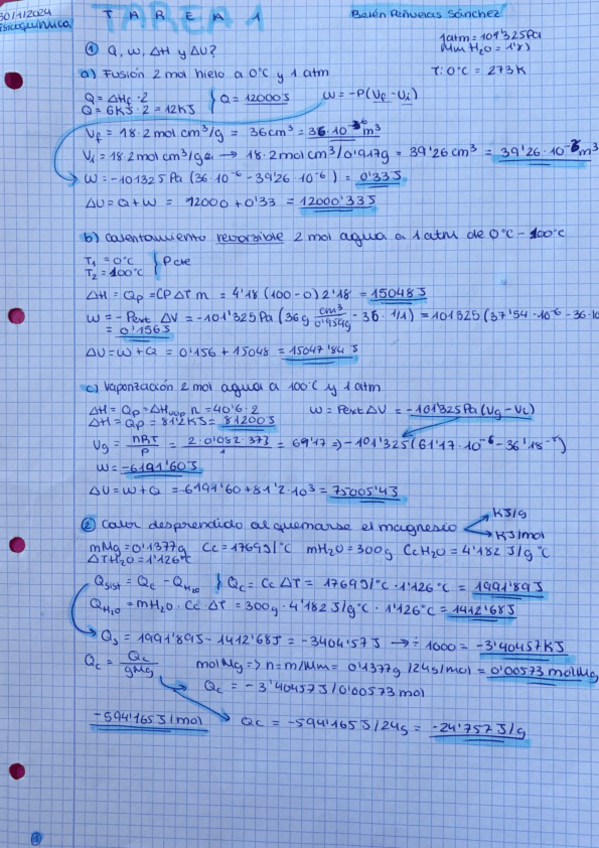 30/1/2024
Fisicoquímica
TAREA 1
Belén Peñuelas Sánchez
1atm = 101'325Pa
① Q, W, ΔH y ΔU?
a) Fusión 2 mol hielo a 0°C y 1 atm
T: 0°C = 273K
Q = ΔHf · 2
Q = 6KJ · 2 = 12KJ } Q = 12000J
W = -P(Vf - Vi)
Vf = 18·2mol cm³/g = 36cm³ = 36·10⁻⁶m³
Vi = 18·2mol cm³/g → 18·2mol cm³/0'917g = 39'26cm³ = 39'26·10⁻⁶m³
W = -101325Pa (36·10⁻⁶ - 39'26·10⁻⁶) = 0'33J
ΔU = Q + W = 12000 + 0'33 = 12000'33J
b) Calentamiento reversible 2 mol agua a 1atm de 0°C - 100°C
T₁ = 0°C
T₂ = 100°C } P cte
ΔH = Qp = CP ΔT m = 4'18 (100-0) 2'18 = 15048J
W = -Pext ΔV = -101'325Pa (36g cm³/0'959g - 36·1/1) = 101325 (37'54·10⁻⁶ - 36·10
= 0'156J
ΔU = W + Q = 0'156 + 15048 = 15047'84J
c) Vaporización 2 mol agua a 100°C y 1 atm
ΔH = Qp = ΔHvap n = 40'6·2
ΔH = Qp = 81'2KJ = 81200J
W = Pext ΔV = -101325Pa (Vg - VL)
Vg = nRT/P = 2·0'082·373/1 = 61'17 => -101'325 (61'17·10⁻⁶ - 36'18⁻⁶)
W = -6191'60J
ΔU = W + Q = -6191'60 + 81'2·10³ = 75005'4J
② Calor desprendido al quemarse el magnesio
KJ/g
KJ/mol
mMg = 0'1377g Cc = 1769J/°C mH2O = 300g CcH2O = 4'182 J/g°C
ΔTH2O = 1'126°C
Qsist = Qc - QH2O } Qc = Cc ΔT = 1769J/°C · 1'126°C = 1991'89J
QH2O = mH2O · Cc · ΔT = 300g · 4'182 J/g°C · 1'126°C = 1412'68J
Qs = 1991'89J - 1412'68J = -3404'57J → ÷ 1000 = -3'40457KJ
Qc = Qc/gMg
mol Mg => n = m/Mm = 0'1377g/24g/mol = 0'00573 molMg
Qc = -3'40457J/0'00573mol
-594'165J/mol
Qc = -594'165J/24g = -24'757J/g
①